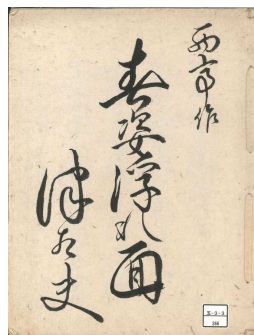 西亭作
春姿浮れ面
津太夫